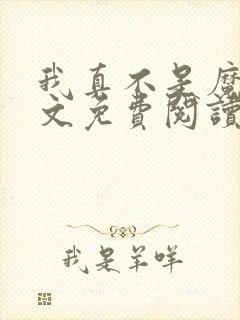 我真不是魔
文免費閱讀
我是羊咩